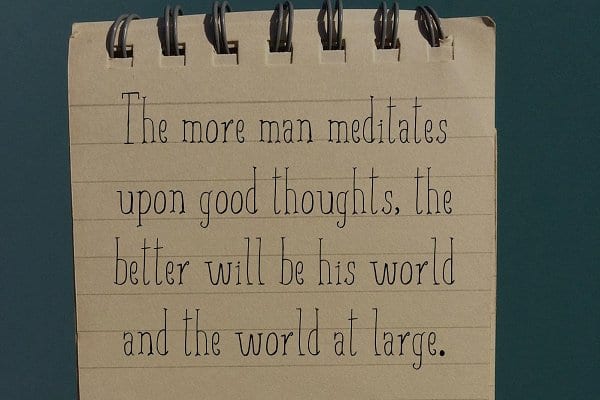 The more man meditates
upon good thoughts, the
better will be his world
and the world at large.